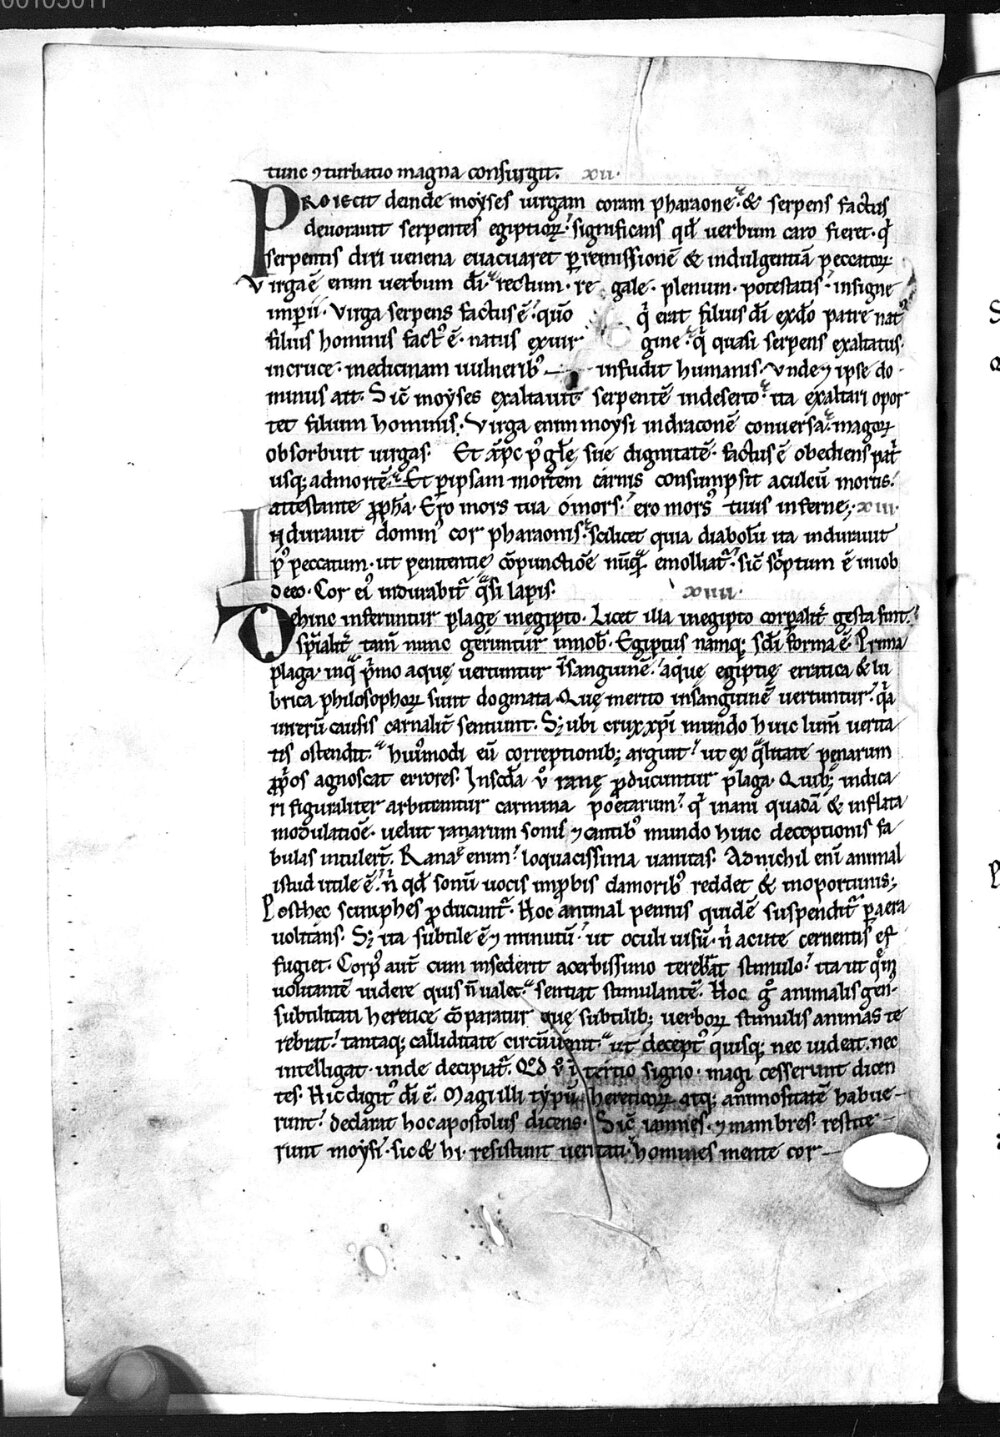 tunc ꝯturbatio magna consurgit. xii.
PROIECIT deinde moyses uirgam coram pharaone. & serpens factus
deuorauit serpentes egiptioꝝ. significans qđ uerbum caro fieret. q̄
serpentis diri uenena euacuaret ꝑ remissionē & indulgentiam peccatoꝝ.
Virga ē enim uerbum dī. rectum. regale. plenum. potestatis. insigne
imperii. Virga serpens factus ē. quō q̄ erat filius dī ex dō patre nat᷒
filius hominis fact᷒ ē. natus ex uirgine. q̄ quasi serpens exaltatus
in cruce. medicinam uulnerib᷒ infudit humanis. Vnde ⁊ ipse do
minus ait. Sic̄ moyses exaltauit serpentē in deserto. ita exaltari opor
tet filium hominis. Virga enim moysi in draconē conuersa. magoꝝ
obsorbuit uirgas. Et xp̄c p᷒ glę suę dignitatē. factus ē obediens pat̄
usq; ad mortē. Et ꝑ ipsam mortem carnis consumpsit aculeū mortis.
attestante ꝓph̄a. Ero mors tua o mors. ero mors᷒ tuus inferne. xiii.
Indurauit domin᷒ cor pharaonis. scilicet quia diabolū ita indurauit
p᷒ peccatum. ut penitentię cōpunctiōe nūq̄ emolliat᷑. sic̄ sc̄ptum ē in iob
de eo. Cor ei᷒ indurabit᷑ q̄si lapis. xiiii.
Dehinc inferuntur plagę in egipto. Licet illa in egipto corꝑalit̄ gesta sint.
sp̄ialit̄ tam̄ nunc geruntur in nob̄. Egiptus namq; sc̄li forma ē. Prima
plaga. in q̄ p̄mo aquę uertuntur ī sanguinē. aquę egiptię erratica & lu
brica philosophoꝝ sunt dogmata. Quę merito in sanguinē uertuntur. q̄a
in rerū causis carnalit̄ sentiunt. S; ubi crux xp̄i mundo huic lum̄ uerita
tis ostendit. hui᷒modi eū correptionib; arguit. ut ex q̄litate penarum
ꝓp̄os agnoscat errores. In sc̄da ū ranę ꝓducuntur plaga. Quib; indica
ri figuraliter arbitrantur carmina poetarum. q̄ inani quadā & inflata
modulatiōe. uelut ranarum sonis ⁊ cantib᷒ mundo huic deceptionis fa
bulas intulert̄. Rana enim loquacissima uanitas. Ad nichil eni animal
istud utile ē. n̄ qđ sonū uocis inp̄bis clamorib᷒ reddet & inoportunis;
Post hec sciniphes ꝓducunt᷑. Hoc animal pennis quidē suspendit᷑ ꝑ aera
uolitans. S; ita subtile ē ⁊ minutū. ut oculi uisū. n̄ acute cernentis ef
fugiet. Corp᷒ aut̄ cum insederit acerbissimo terebrat stimulo. ita ut q̄m
uolitantē uidere quis n̄ ualet. sentiat stimulantē. Hoc g᷒ animalis gen᷒
subtilitati heretice cōparatur quę subtilib; uerboꝝ stimulis animas te
rebrat. tantaq; calliditate circūuenit ut decept᷒ quisq; nec uideat. nec
intelligat. unde decipiat᷑. Qđ ū ī tertio signo. magi cesserunt dicen
tes. Hic digit᷒ dī ē. Magi illi typū hereticoꝝ atq; animositatē habue
runt. declarat hoc apostolus dicens. Sic̄ iamnes. ⁊ mambres. restite
runt moysi. sic & hi. resistunt ueritati. homines mente cor